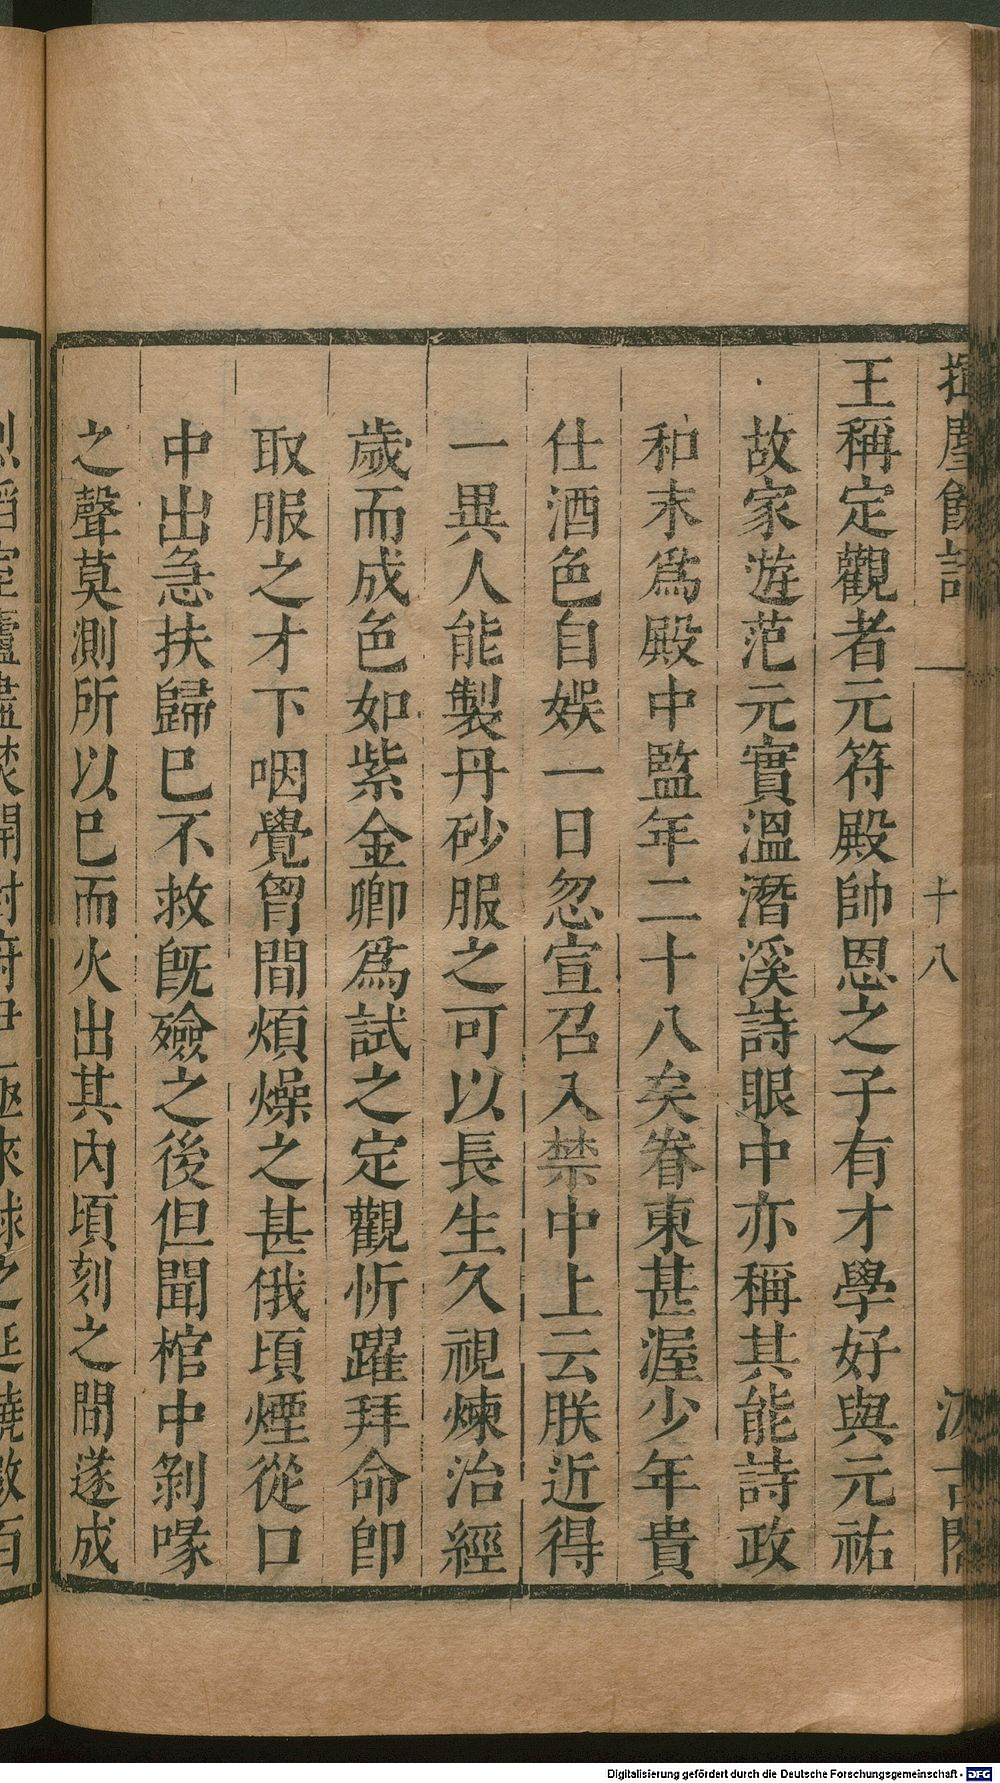 揮麈餘話 一 十八 汲古閣
王稱定觀者元符殿帥恩之子有才學好與元祐
故家遊范元實溫潛溪詩眼中亦稱其能詩政
和末爲殿中監年二十八矣眷東甚渥少年貴
仕酒色自娛一日忽宣召入禁中上云朕近得
一異人能製丹砂服之可以長生久視煉治經
歲而成色如紫金卿爲試之定觀忻躍拜命卽
取服之才下咽覺胷間煩燥之甚俄頃煙從口
中出急扶歸巳不救旣殮之後但聞棺中剝喙
之聲莫測所以巳而火出其內頃刻之間遂成
Digitalisierung gefördert durch die Deutsche Forschungsgemeinschaft - DFG